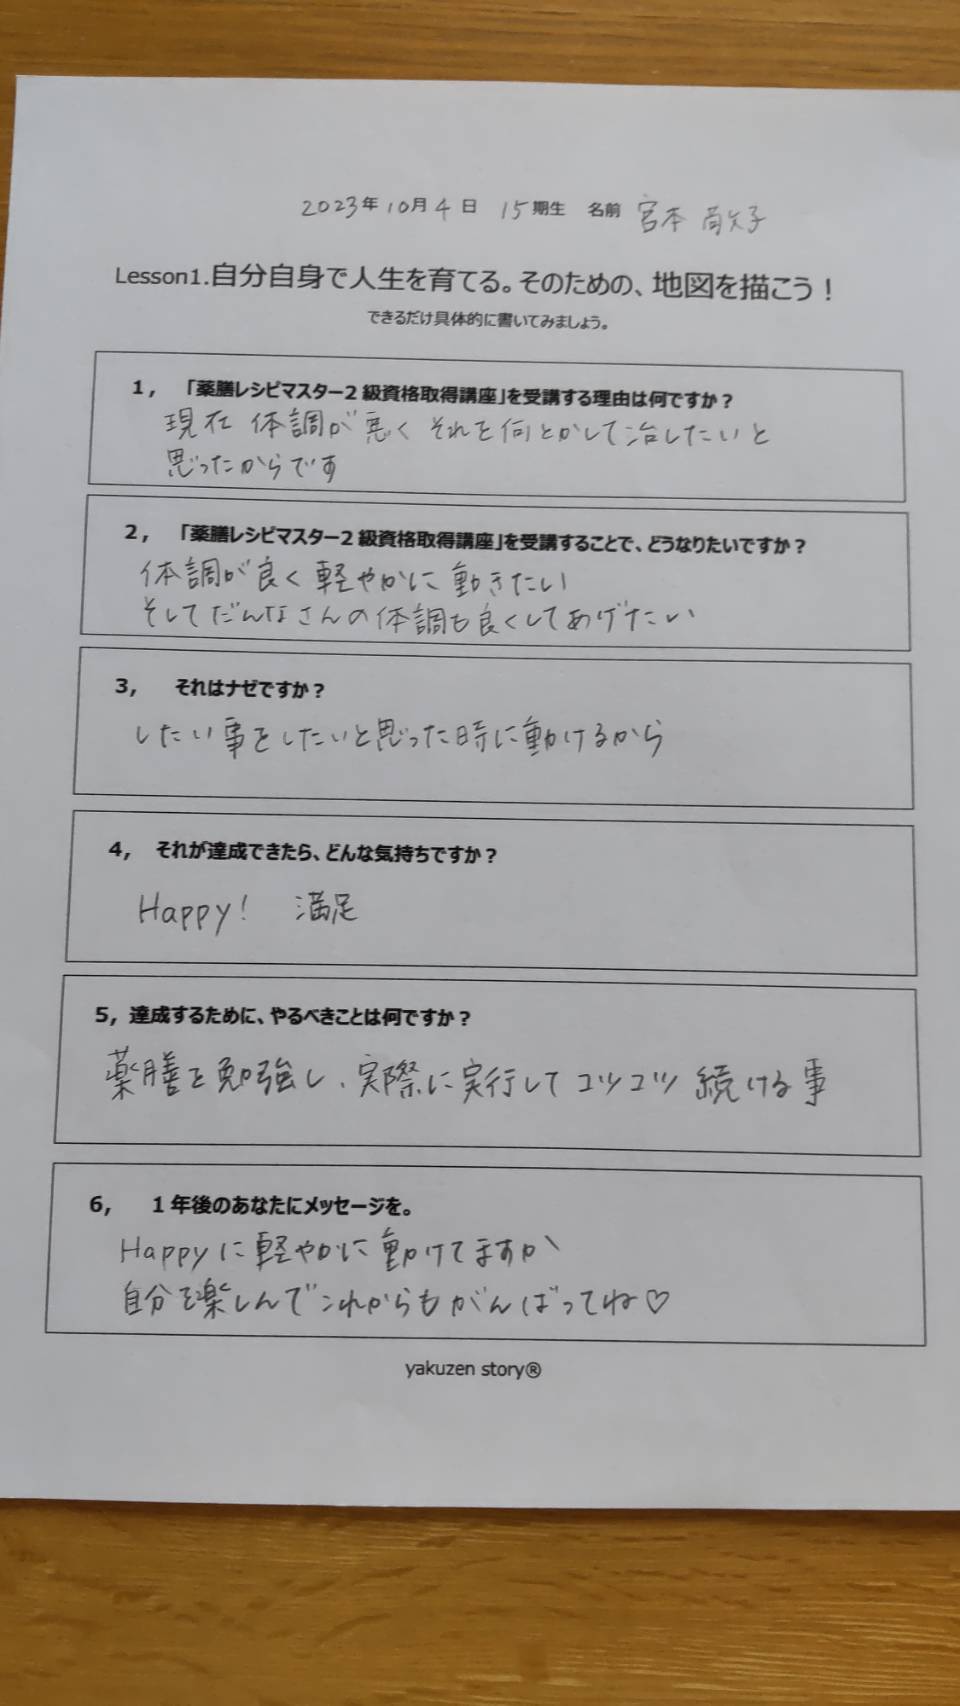 2023年10月4日 15期生 名前 宮本 尚久子
Lesson1.自分自身で人生を育てる。そのための、地図を描こう！
できるだけ具体的に書いてみましょう。
1, 「薬膳レシピマスター2級資格取得講座」を受講する理由は何ですか？
現在 体調が悪く それを何とかして治したいと
思ったからです
2, 「薬膳レシピマスター2級資格取得講座」を受講することで、どうなりたいですか？
体調が良く軽やかに動きたい
そしてだんなさんの体調も良くしてあげたい
3, それはナゼですか？
したい事をしたいと思った時に動けるから
4, それが達成できたら、どんな気持ちですか？
Happy! 満足
5, 達成するために、やるべきことは何ですか？
薬膳を勉強し、実際に実行してコツコツ続ける事
6, 1年後のあなたにメッセージを。
Happyに軽やかに動けてますか
自分を楽しんでこれからもがんばってね♡
yakuzen story®